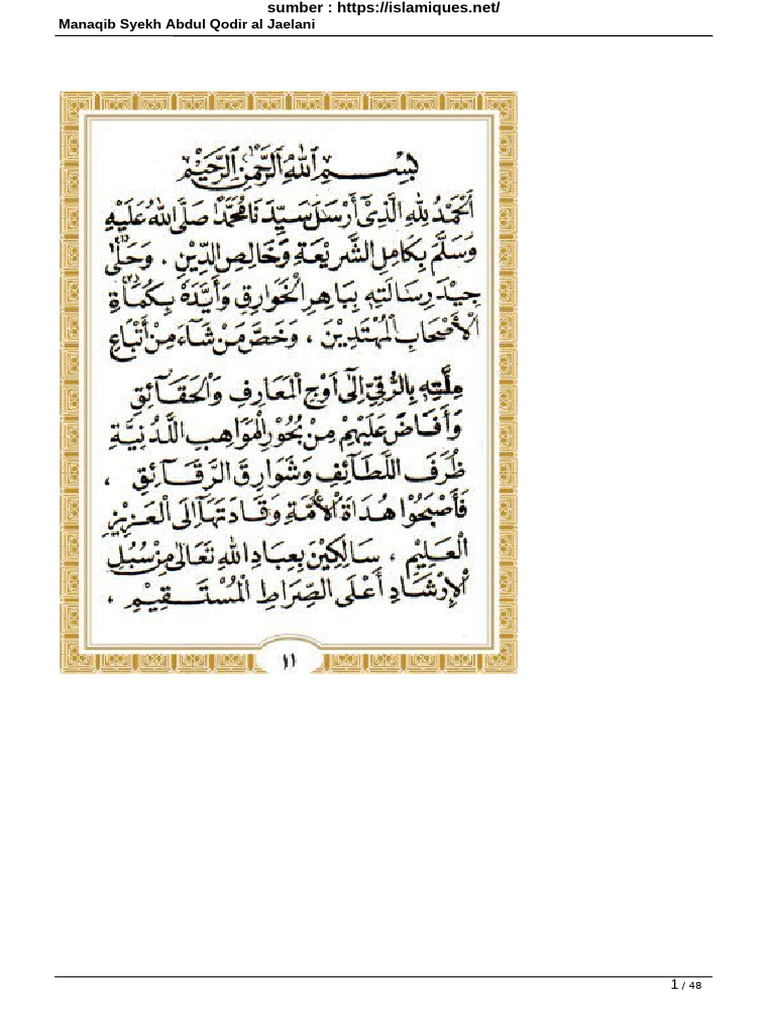 sumber : https://islamiques.net/
Manaqib Syekh Abdul Qodir al Jaelani
بِسْمِ اللهِ الرَّحْمٰنِ الرَّحِيْمِ
اَلْحَمْدُ لِلهِ الَّذِىْ أَرْسَلَ سَيِّدَنَا مُحَمَّدًا صَلَّى اللهُ عَلَيْهِ
وَسَلَّمَ بِكَامِلِ الشَّرِيْعَةِ وَخَالِصِ الدِّيْنِ ، وَحَلَّى
جِيْدَ رِسَالَتِهِ بِبَاهِرِ الْخَوَارِقِ وَأَيَّدَهُ بِكُمَاةِ
الْأَصْحَابِ الْمُهْتَدِيْنَ ، وَخَصَّ مَنْ شَاءَ مِنْ أَتْبَاعِ
مِلَّتِهِ بِالرُّقِيِّ إِلَى أَوْجِ الْمَعَارِفِ وَالْحَقَائِقِ
وَأَفَاضَ عَلَيْهِمْ مِنْ بُحُوْرِ الْمَوَاهِبِ اللَّدُنِيَّةِ
ظُرَفَ اللَّطَائِفِ وَشَوَارِقَ الرَّقَائِقِ ،
فَأَصْبَحُوْا هُدَاةَ الْأُمَّةِ وَقَادَتَهَا إِلَى الْعَزِيْزِ
الْعَلِيْمِ ، سَالِكِيْنَ بِعِبَادِ اللهِ تَعَالَى مِنْ سُبُلِ
الْإِرْشَادِ أَعْلَى الصِّرَاطِ الْمُسْتَقِيْمِ ،
١١
1 / 48